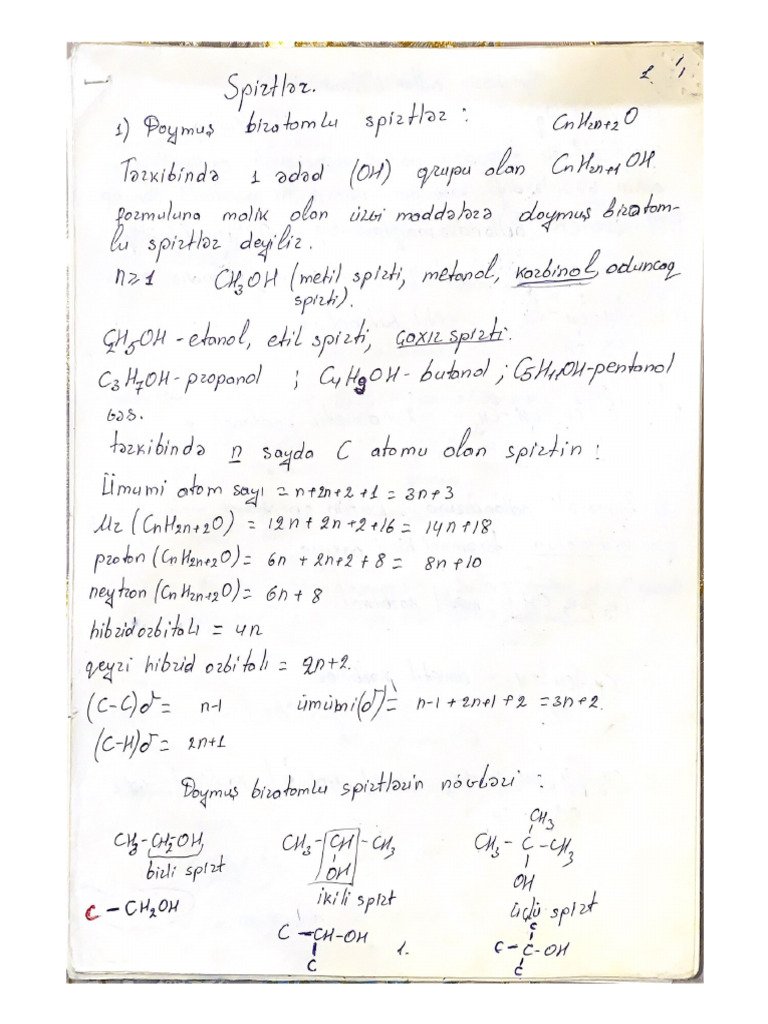 Spirtlər.
1) Doymuş biratomlu spirtlər : CnH2n+2O
Tərkibində 1 ədəd (OH) qrupu olan CnH2n+1OH
formuluna malik olan üzvi maddələrə doymuş biratom-
lu spirtlər deyilir.
n≥1 CH3OH (metil spirti, metanol, karbinol, oduncaq
spirti).
C2H5OH - etanol, etil spirti, çaxır spirti.
C3H7OH - propanol ; C4H9OH - butanol ; C5H11OH - pentanol
və s.
tərkibində n sayda C atomu olan spirtin :
Ümumi atom sayı = n+2n+2+1 = 3n+3
Mr (CnH2n+2O) = 12n + 2n+2+16 = 14n+18.
proton (CnH2n+2O) = 6n + 2n+2 + 8 = 8n+10
neytron (CnH2n+2O) = 6n + 8
hibrid orbitalı = 4n
qeyri hibrid orbitalı = 2n+2.
(C-C)σ = n-1 ümumi(σ) = n-1 + 2n+1 + 2 = 3n+2.
(C-H)σ = 2n+1
Doymuş biratomlu spirtlərin növləri :
CH3
CH3-CH2-OH CH3-CH-CH3 CH3-C-CH3
OH OH
birli spirt ikili spirt üçlü spirt
C
C-CH2OH C-CH-OH C-C-OH
C C
1.